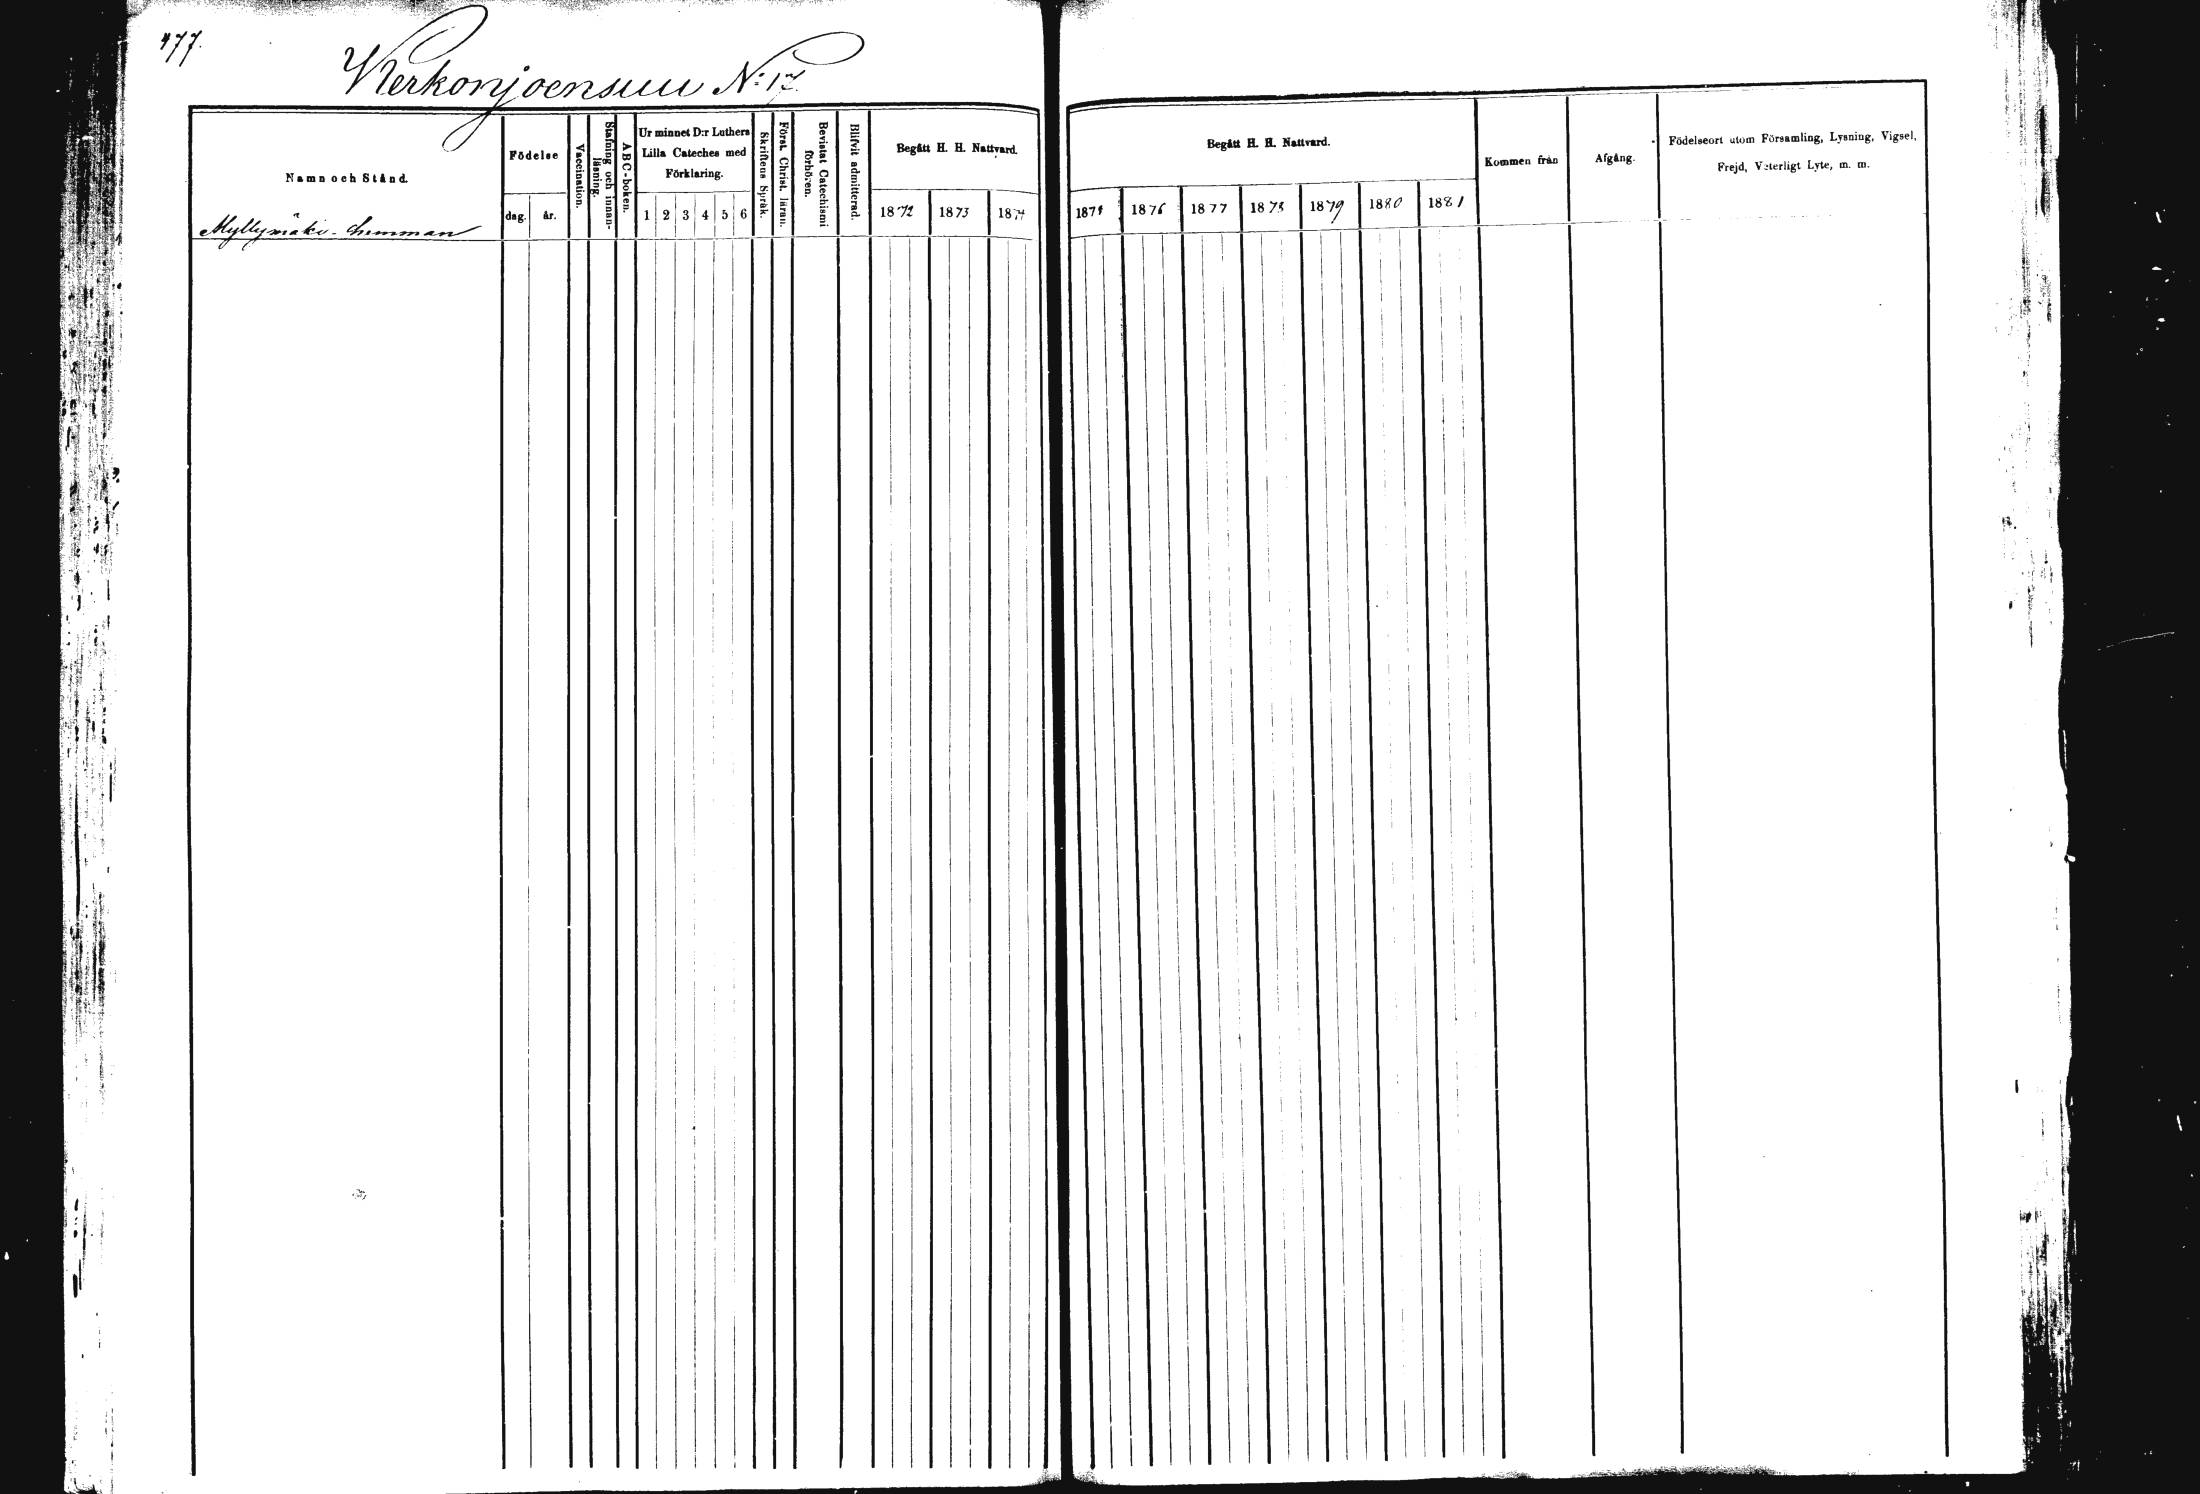 477.
Kerkonjoensuu N:o 17.
Namn och Stånd.
Födelse
dag. år.
Vaccination.
Stafning och innan-
läsning.
ABC-boken.
Ur minnet D:r Luthers
Lilla Cateches med
Förklaring.
1 2 3 4 5 6
Skriftens Språk.
Först. Christ. läran.
Bevistat Catechismi
förhören.
Blifvit admitterad.
Begått H. H. Nattvard.
1872 1873 1874
Begått H. H. Nattvard.
1875 1876 1877 1878 1879 1880 1881
Kommen från
Afgång.
Födelseort utom Församling, Lysning, Vigsel,
Frejd, Veterligt Lyte, m. m.
Myllymäki- hemman